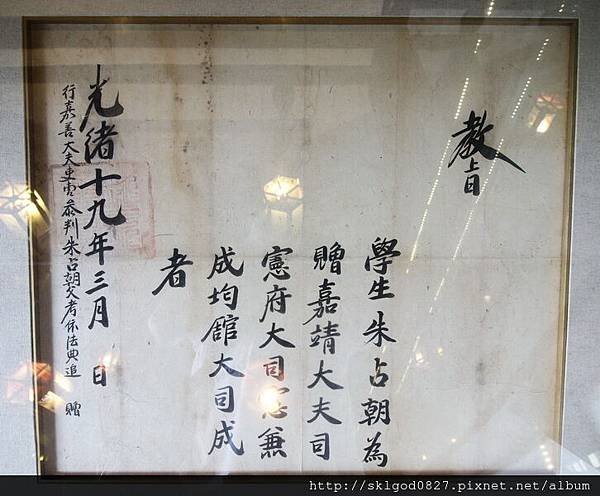 教旨
學生朱占朝為
贈嘉靖大夫司
憲府大司憲兼
成均館大司成
者
光緒十九年三月 日
行嘉善大夫吏曹參判朱占朝父考依法典追 贈
http://sklgod0827.pixnet.net/album